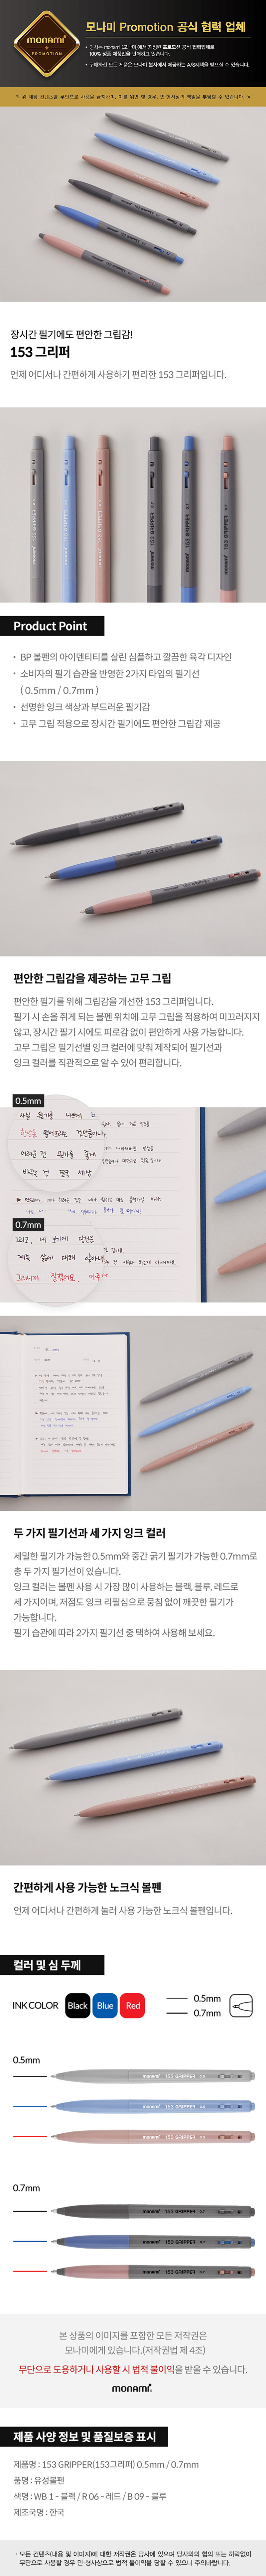 monami
PROMOTION
모나미 Promotion 공식 협력 업체
• 당사는 monami (모나미)에서 지정한 프로모션 공식 협력업체로
100% 정품 제품만을 판매하고 있습니다.
• 구매하신 모든 제품은 모나미 본사에서 제공하는 A/S혜택을 받으실 수 있습니다.
※ 위 해당 컨텐츠를 무단으로 사용을 금지하며, 이를 위반 할 경우, 민·형사상의 책임을 부담할 수 있습니다. ※
장시간 필기에도 편안한 그립감!
153 그리퍼
언제 어디서나 간편하게 사용하기 편리한 153 그리퍼입니다.
Product Point
• BP 볼펜의 아이덴티티를 살린 심플하고 깔끔한 육각 디자인
• 소비자의 필기 습관을 반영한 2가지 타입의 필기선
( 0.5mm / 0.7mm )
• 선명한 잉크 색상과 부드러운 필기감
• 고무 그립 적용으로 장시간 필기에도 편안한 그립감 제공
편안한 그립감을 제공하는 고무 그립
편안한 필기를 위해 그립감을 개선한 153 그리퍼입니다.
필기 시 손을 쥐게 되는 볼펜 위치에 고무 그립을 적용하여 미끄러지지
않고, 장시간 필기 시에도 피로감 없이 편안하게 사용 가능합니다.
고무 그립은 필기선별 잉크 컬러에 맞춰 제작되어 필기선과
잉크 컬러를 직관적으로 알 수 있어 편리합니다.
0.5mm
0.7mm
두 가지 필기선과 세 가지 잉크 컬러
세밀한 필기가 가능한 0.5mm와 중간 굵기 필기가 가능한 0.7mm로
총 두 가지 필기선이 있습니다.
잉크 컬러는 볼펜 사용 시 가장 많이 사용하는 블랙, 블루, 레드로
세 가지이며, 저점도 잉크 리필심으로 뭉침 없이 깨끗한 필기가
가능합니다.
필기 습관에 따라 2가지 필기선 중 택하여 사용해 보세요.
간편하게 사용 가능한 노크식 볼펜
언제 어디서나 간편하게 눌러 사용 가능한 노크식 볼펜입니다.
컬러 및 심 두께
INK COLOR Black Blue Red
0.5mm
0.7mm
0.5mm
monami 153 GRIPPER 0.5
monami 153 GRIPPER 0.5
monami 153 GRIPPER 0.5
0.7mm
monami 153 GRIPPER 0.7
monami 153 GRIPPER 0.7
monami 153 GRIPPER 0.7
본 상품의 이미지를 포함한 모든 저작권은
모나미에게 있습니다.(저작권법 제 4조)
무단으로 도용하거나 사용할 시 법적 불이익을 받을 수 있습니다.
monami
제품 사양 정보 및 품질보증 표시
제품명 : 153 GRIPPER(153그리퍼) 0.5mm / 0.7mm
품명 : 유성볼펜
색명 : WB 1 - 블랙 / R 06 - 레드 / B 09 - 블루
제조국명 : 한국
· 모든 컨텐츠(내용 및 이미지)에 대한 저작권은 당사에 있으며 당사와의 협의 또는 허락없이
무단으로 사용할 경우 민·형사상으로 법적 불이익을 당할 수 있으니 주의바랍니다.